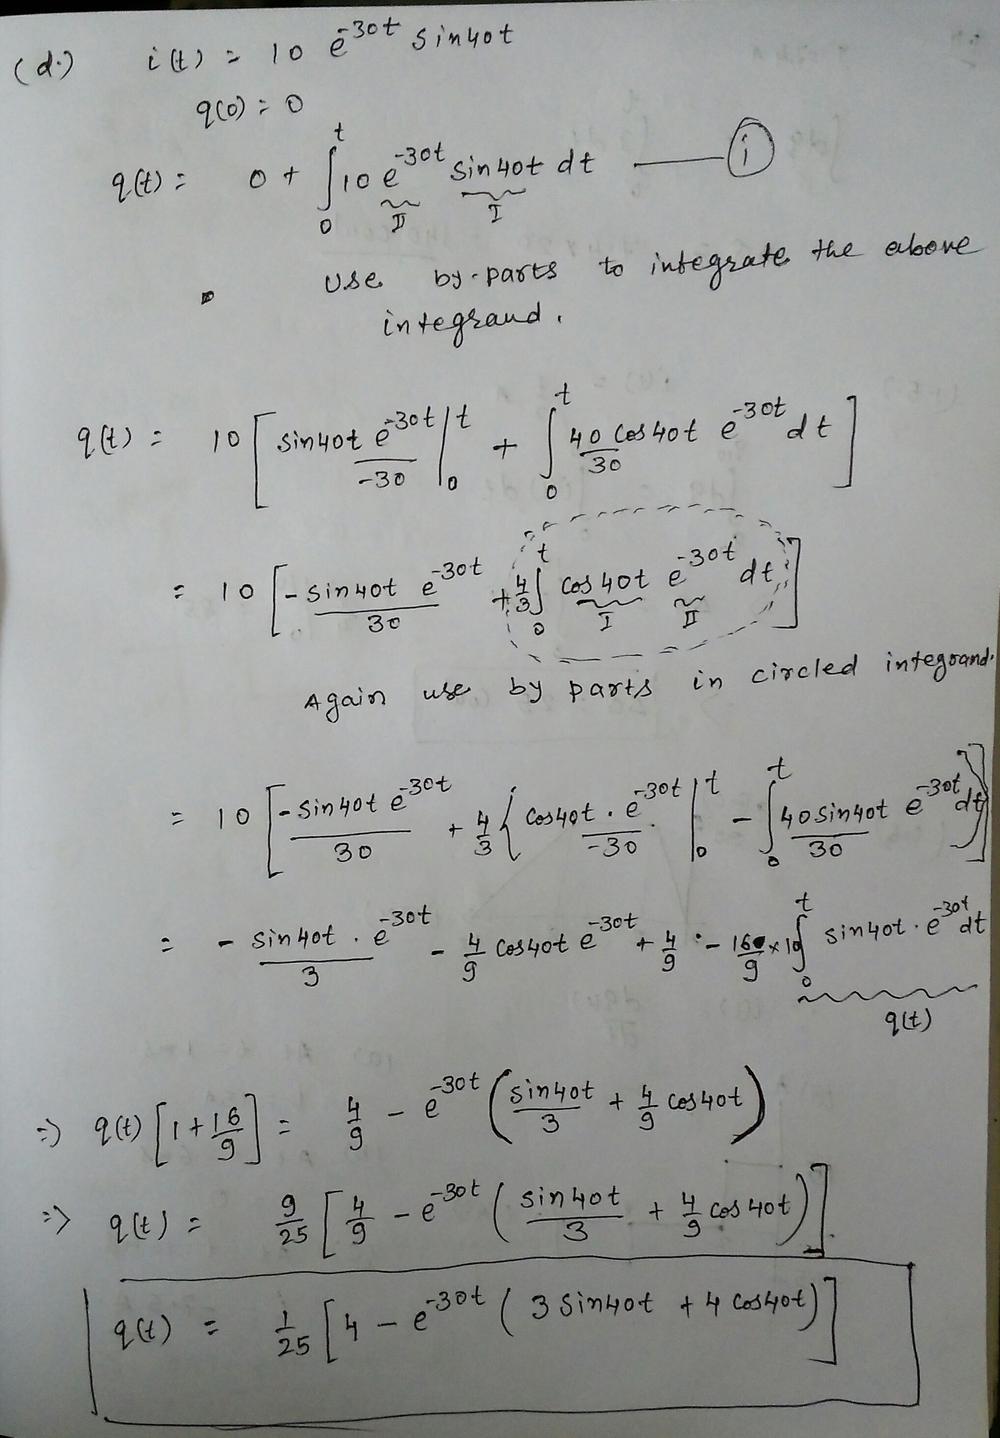 (d.) i(t) = 10 e^{-30t} sin40t
q(0) = 0
q(t) = 0 + ∫_0^t 10 e^{-30t} sin40t dt —— (i)
II I
use by-parts to integrate the above
integrand.
q(t) = 10 [ sin40t e^{-30t}/-30 |_0^t + ∫_0^t 40/30 cos40t e^{-30t} dt ]
= 10 [ - sin40t e^{-30t}/30 + 4/3 ∫_0^t cos40t e^{-30t} dt ]
I II
Again use by parts in circled integrand.
= 10 [ - sin40t e^{-30t}/30 + 4/3 { cos40t . e^{-30t}/-30 |_0^t - ∫_0^t 40 sin40t/30 e^{-30t} dt } ]
= - sin40t . e^{-30t}/3 - 4/9 cos40t e^{-30t} + 4/9 - 16/9 × 10 ∫_0^t sin40t . e^{-30t} dt
q(t)
=> q(t) [ 1 + 16/9 ] = 4/9 - e^{-30t} ( sin40t/3 + 4/9 cos40t )
=> q(t) = 9/25 [ 4/9 - e^{-30t} ( sin40t/3 + 4/9 cos40t ) ]
q(t) = 1/25 [ 4 - e^{-30t} ( 3 sin40t + 4 cos40t ) ]